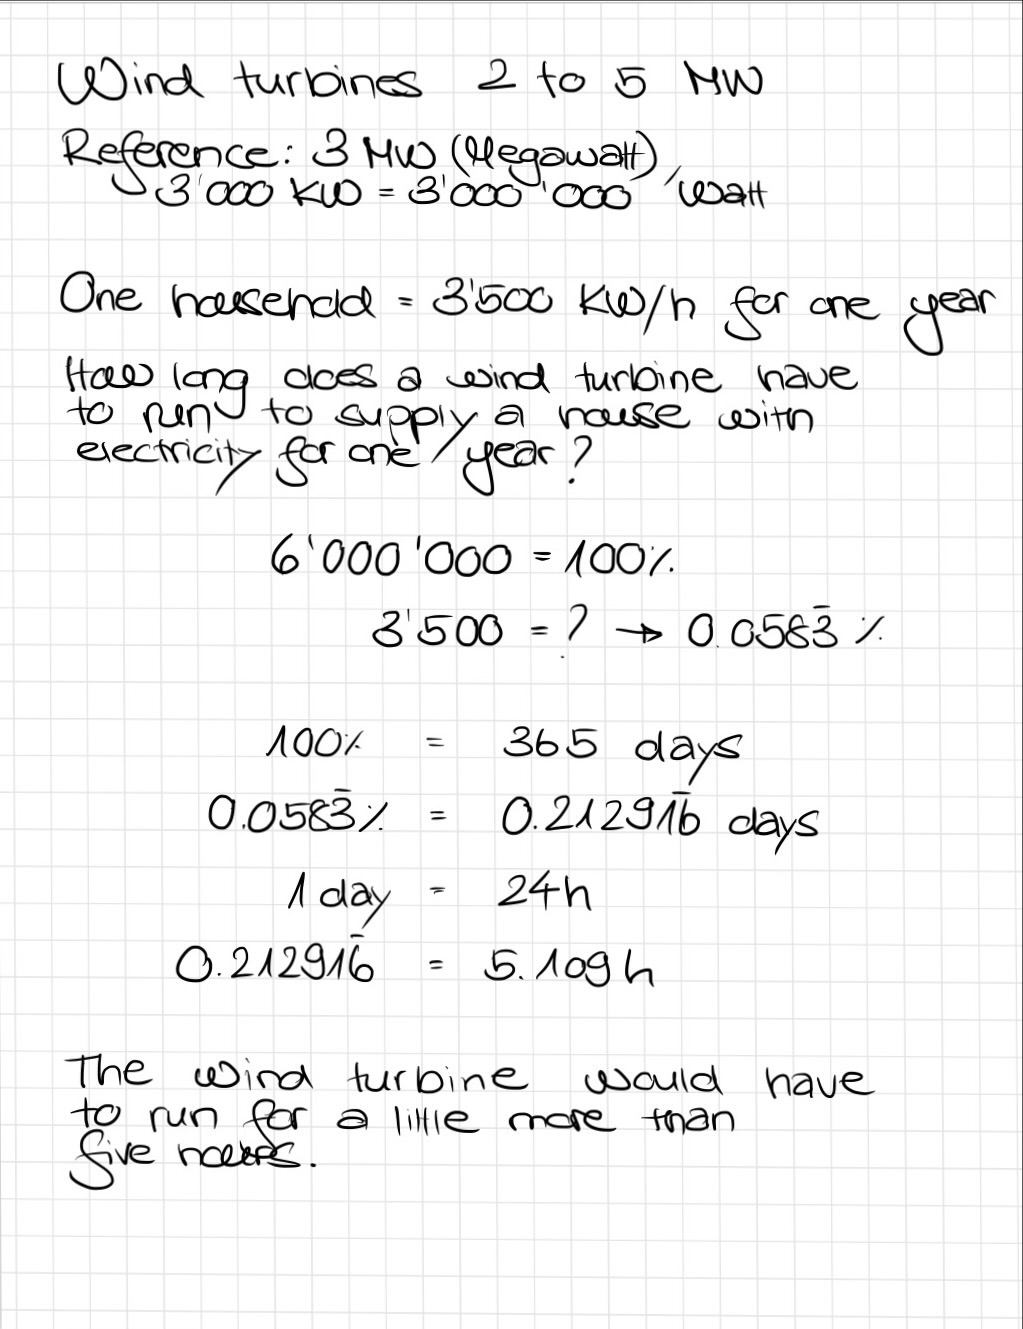 Wind turbines 2 to 5 MW
Reference: 3 MW (Megawatt)
3'000 KW = 3'000'000 Watt
One household = 3'500 KW/h for one year
How long does a wind turbine have
to run to supply a house with
electricity for one year?
6'000'000 = 100%
3'500 = ? → 0.0583̅ %
100% = 365 days
0.0583̅% = 0.212916̅ days
1 day = 24h
0.212916̅ = 5.109h
The wind turbine would have
to run for a little more than
five hours.